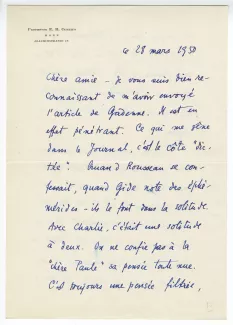 ce 28 mars 1950
Chère amie – je vous suis bien re-
connaissant de m'avoir envoyé
l'article de Guéhenne. Il est en
effet pénétrant. Ce qui me gêne
dans le Journal, c'est le côté "
". Quand Rousseau se con-
fessait, quand Gide note des éphé-
mérides – ils le font dans la solitude.
Avec Charlie, c'était une solitude
à deux. On ne confie pas à la
"chère Paule" sa pensée toute nue.
C'est toujours une pensée filtrée,